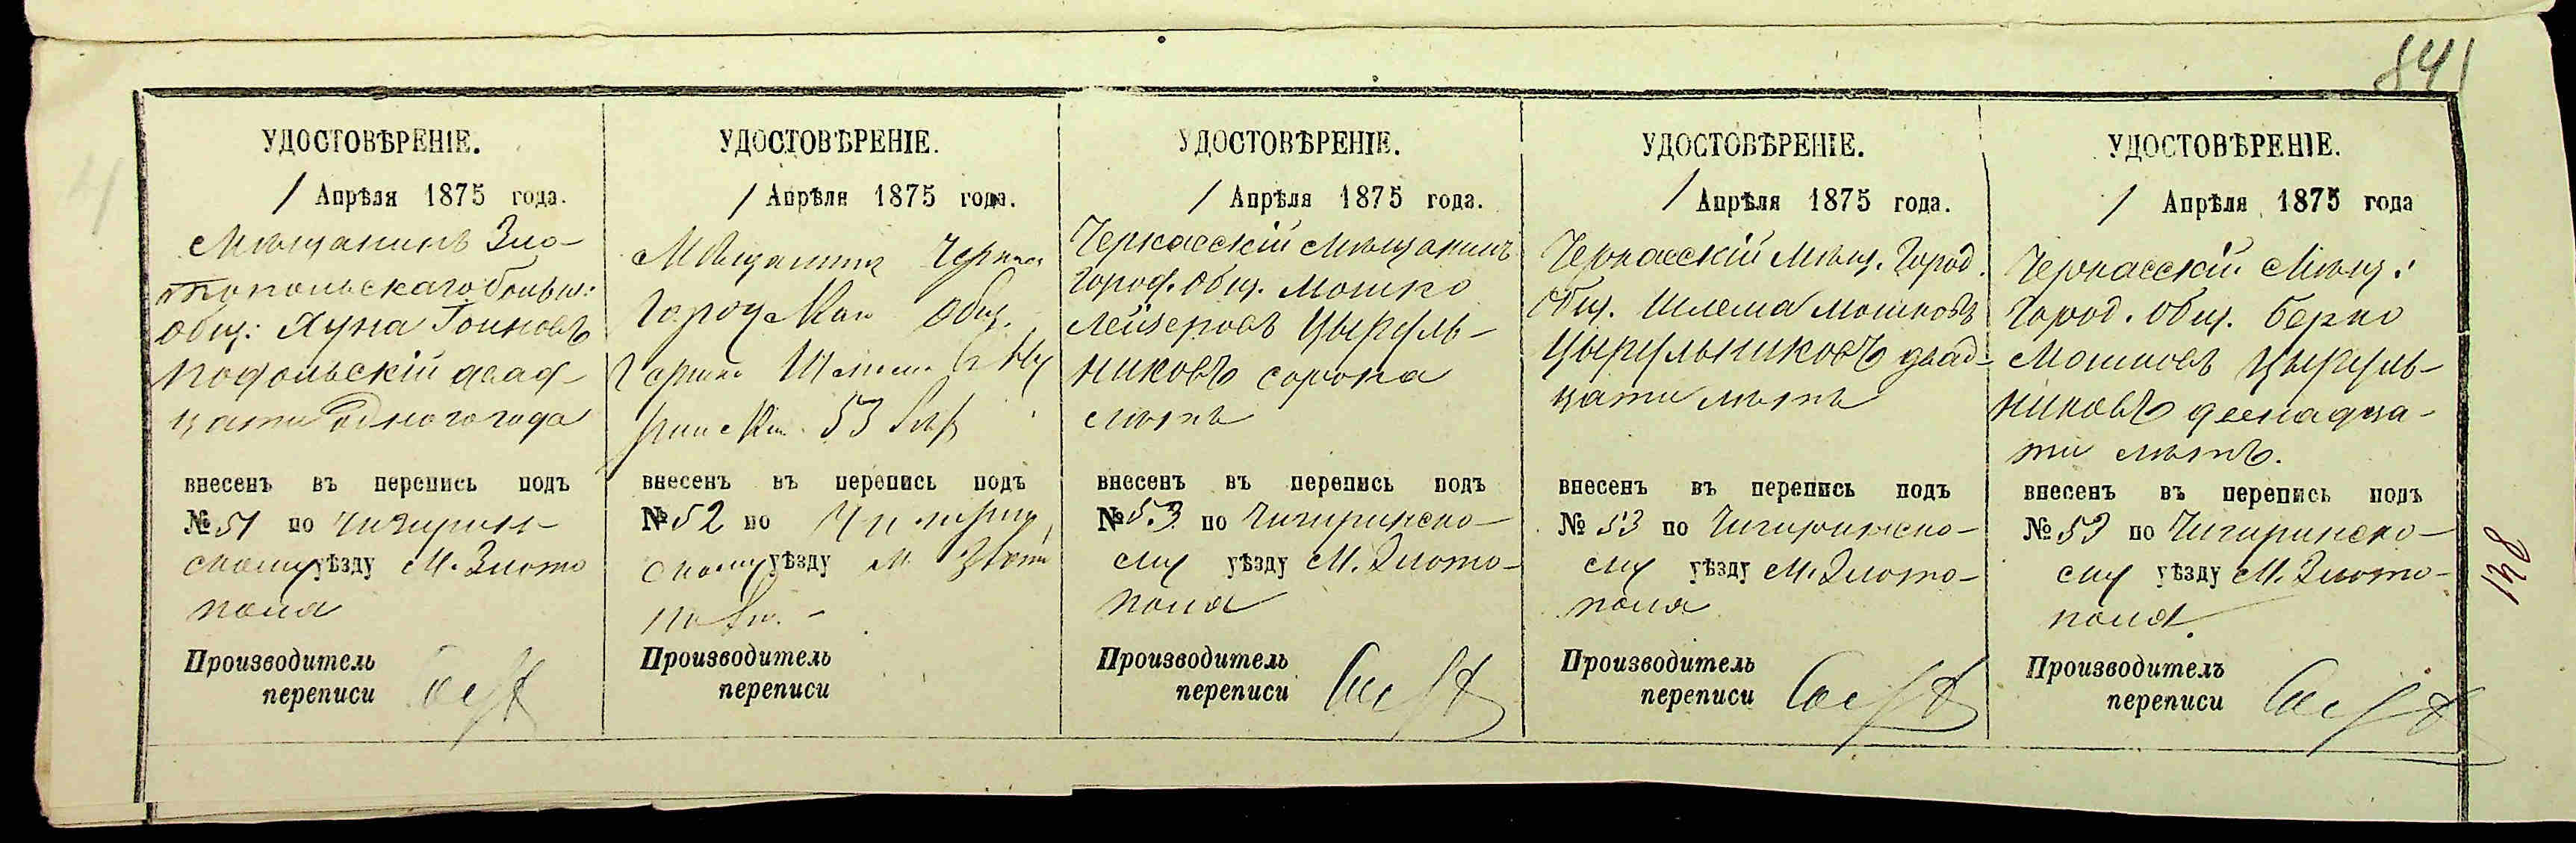 841
УДОСТОВѢРЕНІЕ.
1 Апрѣля 1875 года.
Мѣщанинъ Зло-
топольскаго
общ:
Подольскій двад-
цати одного года
внесенъ въ перепись подъ
№ 51 по Чигирин-
скому уѣзду М. Злото
поля
Производитель
переписи
УДОСТОВѢРЕНІЕ.
1 Апрѣля 1875 года.
Мѣщанинъ Черкас
Город общ.
Гершко
53 лѣт
внесенъ въ перепись подъ
№ 52 по Чигирин
скому уѣзду М. Злото
поля. -
Производитель
переписи
УДОСТОВѢРЕНІЕ.
1 Апрѣля 1875 года.
Черкасскій Мѣщанинъ
Город. Общ. Мошко
Лейзеровъ Цыруль-
никовъ сорока
лѣтъ
внесенъ въ перепись подъ
№ 53 по Чигиринско-
му уѣзду М. Злото-
поля
Производитель
переписи
УДОСТОВѢРЕНІЕ.
1 Апрѣля 1875 года.
Черкасскій Мѣщ. Город.
Общ. Шлема Мошковъ
Цырульниковъ двад-
цати лѣтъ
внесенъ въ перепись подъ
№ 53 по Чигиринско-
му уѣзду М. Злото-
поля
Производитель
переписи
УДОСТОВѢРЕНІЕ.
1 Апрѣля 1875 года
Черкасскій Мѣщ:
Город. Общ. Берко
Мошковъ Цыруль-
никовъ двенадца-
ти лѣтъ.
внесенъ въ перепись подъ
№ 53 по Чигиринско-
му уѣзду М. Злото-
поля.
Производитель
переписи
138